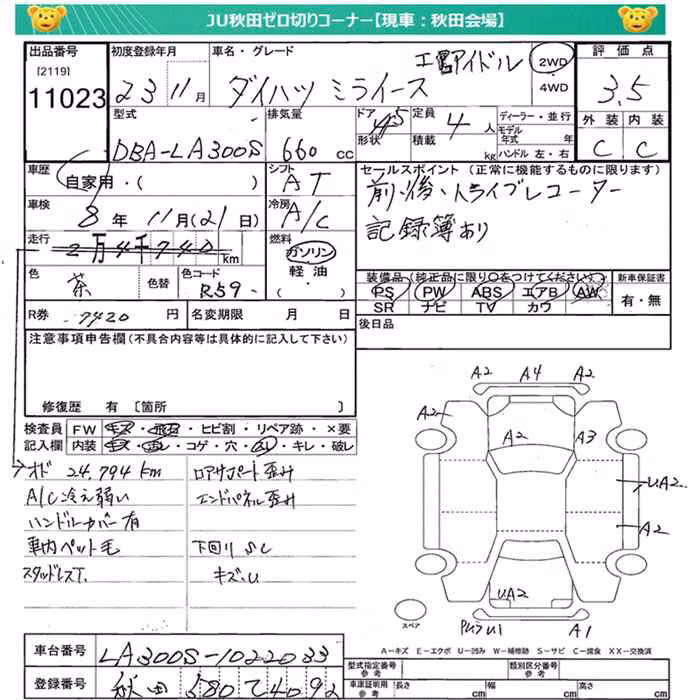 JU秋田ゼロ切りコーナー【現車：秋田会場】
出品番号 [2119] 11023
初度登録年月 23 11月
車名・グレード ダイハツ ミライース
エコアイドル
2WD ・ 4WD
評価点 3.5
外装 内装
C C
型式 DBA-LA300S
排気量 660 cc
ドア 5
形状
定員 4 人
積載 kg
ディーラー・並行
モデル年式 年
ハンドル 左・右
車歴 自家用・( )
シフト AT
セールスポイント (正常に機能するものに限ります)
前.後.ドライブレコーダー
記録簿あり
車検 8年 11月(21日)
冷房 A/C
走行 2万4千740 km
燃料 ガソリン・軽油・( )
色 茶
色替
色コード R59
装備品(純正品に限り○をつけてください)
PS PW ABS エアB AW
SR ナビ TV カワ
新車保証書 有・無
R券 7420 円
名変期限 月 日
後日品
注意事項申告欄(不具合内容等は具体的に記入して下さい)
修復歴 有 [箇所 ]
検査員記入欄
FW キズ・飛石・ヒビ割・リペア跡・×要
内装 キズ・汚れ・コゲ・穴・スレ・キレ・破レ
オド 24,794 km
A/C冷え弱い
ハンドルカバー有
車内ペット毛
スタッドレスT.
ロアサポート歪み
エンドパネル歪み
下回りS.C
キズ.U
A2 A4 A2
A2
A2 A3
UA2
A2
UA2
A1
スペア
A－キズ E－エクボ U－凹み W－補修跡 S－サビ C－腐食 XX－交換済
車台番号 LA300S-1022033
登録番号 秋田 580 て 4092
型式指定番号 参考
類別区分番号 参考
車庫証明用 参考 長さ cm 幅 cm 高さ cm